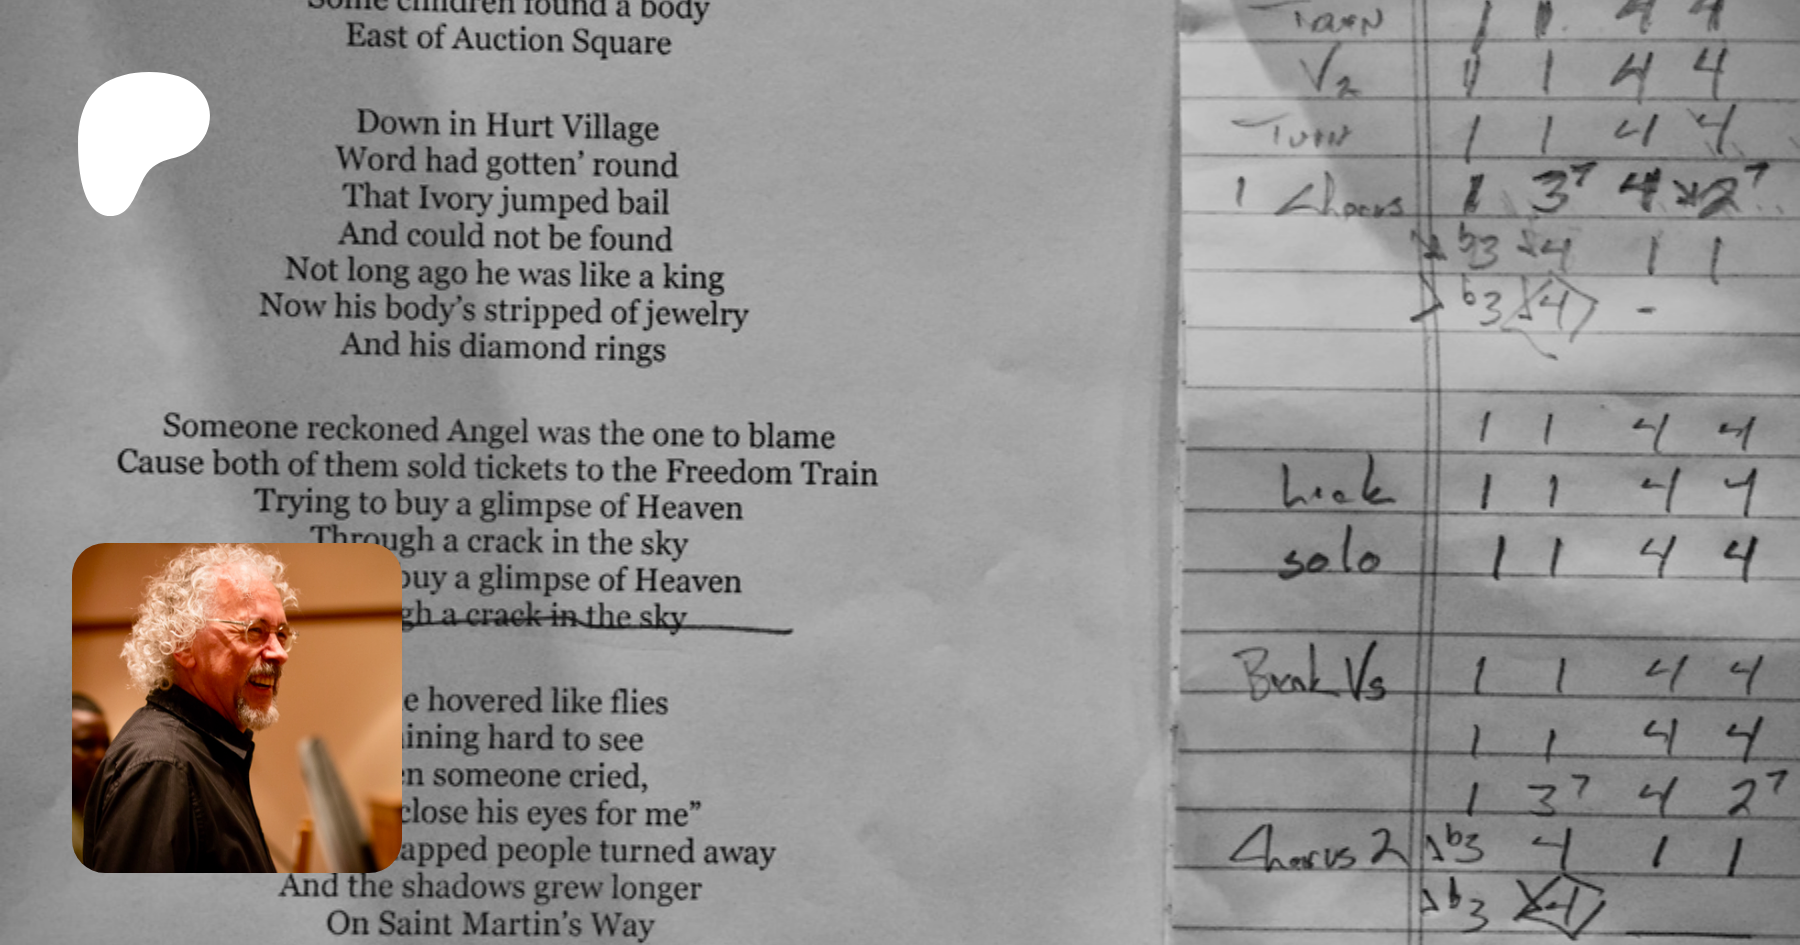 Some children found a body
East of Auction Square
Down in Hurt Village
Word had gotten’ round
That Ivory jumped bail
And could not be found
Not long ago he was like a king
Now his body’s stripped of jewelry
And his diamond rings
Someone reckoned Angel was the one to blame
Cause both of them sold tickets to the Freedom Train
Trying to buy a glimpse of Heaven
Through a crack in the sky
buy a glimpse of Heaven
a crack in the sky
hovered like flies
hard to see
someone cried,
close his eyes for me”
people turned away
And the shadows grew longer
On Saint Martin’s Way
Turn 1 1 4 4
V2 1 1 4 4
Turn 1 1 4 4
1 Chorus 1 3⁷ 4 2⁷
b3 4 1 1
b3 4 -
1 1 4 4
1 1 4 4
solo 1 1 4 4
Break Vs 1 1 4 4
1 1 4 4
1 3⁷ 4 2⁷
Chorus 2 b3 4 1 1
b3 4